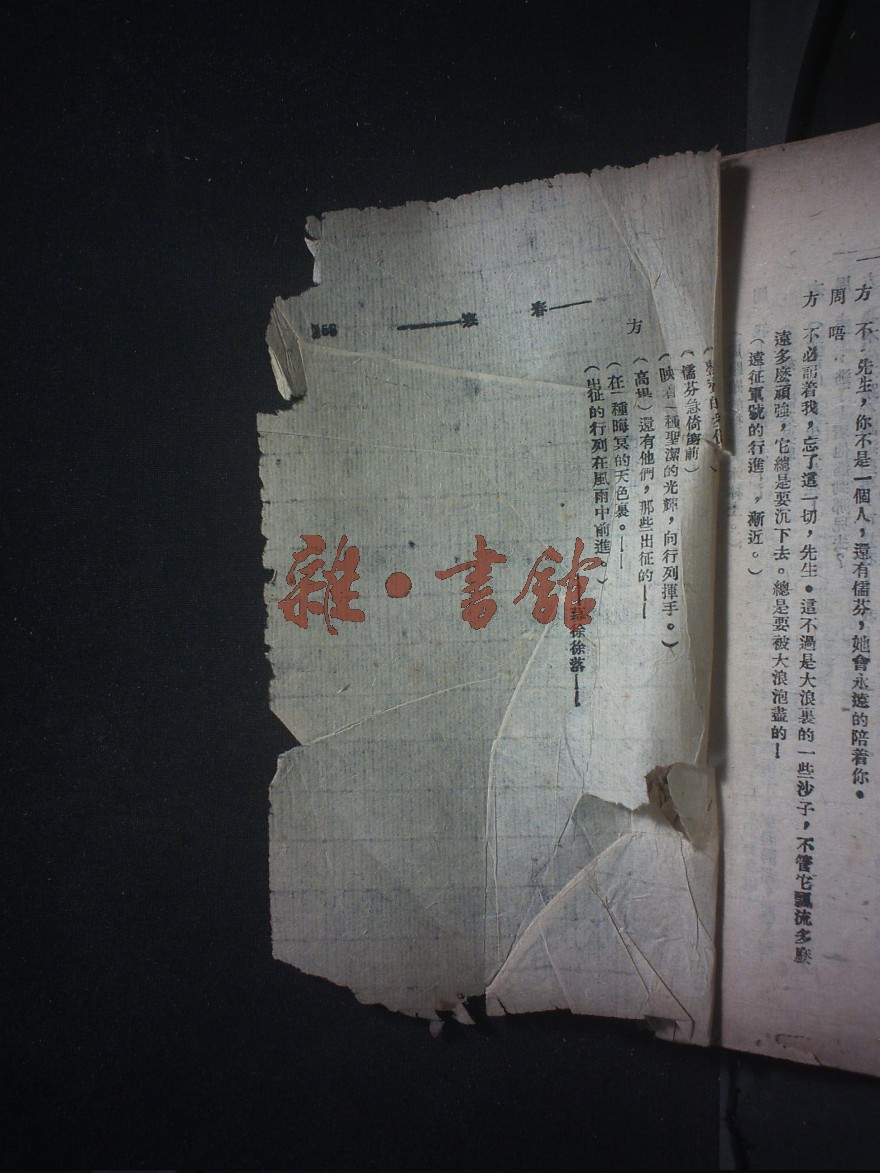 方　不，先生，你不是一個人，還有儒芬，她會永遠的陪着你。
周　唔，
方　不必記着我，忘了這一切，先生。這不過是大浪裏的一些沙子，不管它飄流多麽
遠多麽頑強，它總是要沉下去。總是要被大浪泡盡的—
（遠征軍號的行進，漸近。）
（儒芬急倚窗前）
（映着一種聖潔的光輝，向行列揮手。）
方　（高興）還有他們，那些出征的——
（在一種晦冥的天色裏。——
（出征的行列在風雨中前進。）
徐徐落——
春
雜·書館